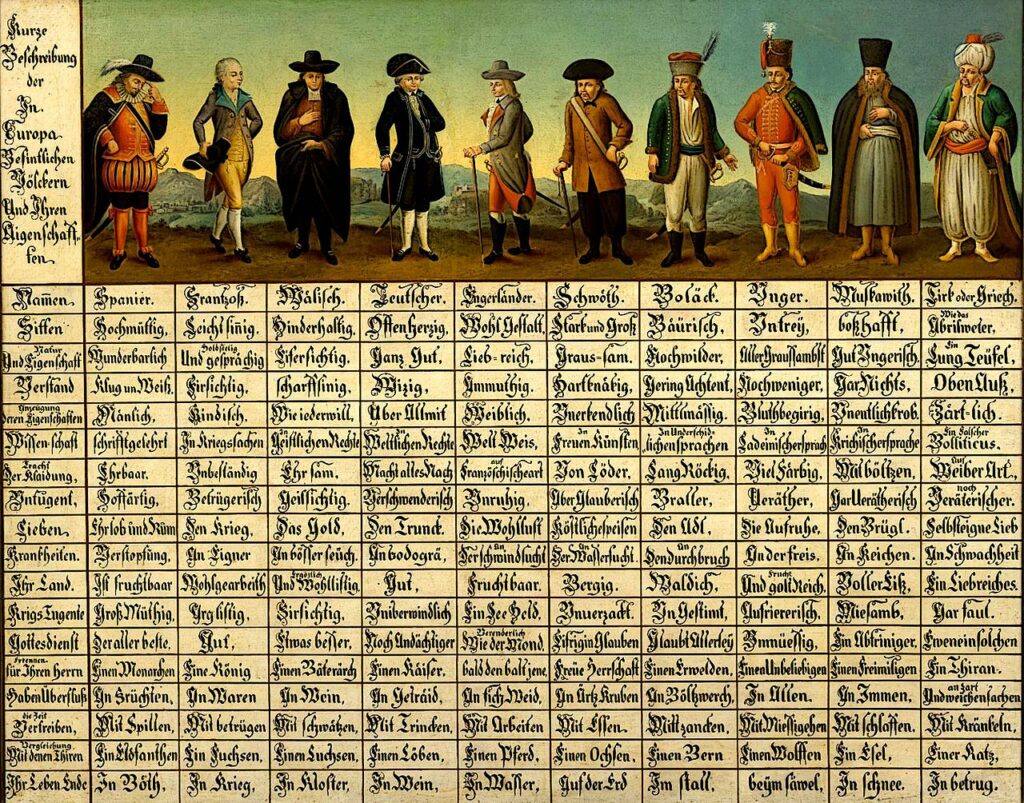 Kurze
Beschreibung
der
In
Europa
Befintlichen
Völckern
Und Ihren
Aigenschaff-
ten
Namen. Spanier. Frantzoß. Wälisch. Teutscher. Engerländer. Schwöth. Boläck. Unger. Muskawith. Tirk oder Griech.
Sitten Hochmüttig, Leicht sinig. Hinderhaltig. Offenherzig, Wohl Gestalt, Stark und Groß Bäurisch, Untrey, boßhafft, Wie das Abrilweter,
Und Natur Eigenschaft Wunderbarlich Und Holdseelig gesprächig Eifersichtig. Ganz Gut, Lieb-reich, Graus-sam, Hochwilder, Aller Graussambst Gut Ungerisch. Ein Lung Teüfel,
Verstand Klug un Weiß, Firsichtig, scharffsinig, Wizig, Ammuthig. Hartknäbig, Gering Achtent, Nochweniger, Gar Nichts, Oben Auß,
Anzeügung deren Eigenschaften Mänlich, Kindisch, Wie ieder will, Über Allmit Weiblich, Unerkendlich Mittlmässig, Bluthbegirig, Unentlich krob. Zärt-lich.
Wissenschaft schrifftgelehrt In Kriegssachen In Geistlichen Rechte In Weltlichen Rechte Welt Weis, In Freuen Künsten In Underschidlichen sprachen In Ladeinischersprach In Krichischersprache Ein Falscher Bolliticus.
Tracht Der Klaidung, Ehrbaar. Unbeständig Ehrsam, Macht alles Nach auf Französchischeart Von Löder, Lang Röckig, Viel Färbig, Mit böltzen, Auf Weiber Art,
Untugent, Hoffärtig, Betrügerisch Geillsichtig, Verschwenderisch Unruhig, Aber Glauberisch Braller, Veräther, Gar Verätherisch noch Veräterischer.
Lieben. Ehrlob und Rüm Den Krieg, Das Gold, Den Trunck. Die Wohllust Köstliche speisen Den Adl, Die Aufruhe, Den Brügl. Selbsteigne Lieb
Krankheiten. Verstopfung, An Eigner An bösser seüch, An bodogrä, An Der schwindsucht Der Wassersucht. An Den durchbruch An der freis. An Keichen. An Schwachheit
Ihr Land. Ist fruchtbaar Wohlgearbeith Ergözlich Und Wohllistig Gut, Fruchtbaar. Bergig. Waldich, Frucht Und golt Reich. Voller Eiß, Ein Liebreiches.
Krigs Tugente Groß Müthig, Arglistig, Firsichtig, Uniberwindlich Ein See Held. Unverzackt. Un Gestimt, Aufriererisch, Miesamb, Gar faul.
Gottesdienst Der aller beste. Gut, Etwas besser, Noch Andächtiger Wie der Mond. Eifrig in Glauben Glaubt Allerley Unmüessig, Ein Abtriniger, Eweneinsolchen
Erkennen für Ihren Herrn Einen Monarchen Eine König Einen Bäterärch Einen Käiser, bald den balt jene, Freüe Herrschaft Einen Erwölden, Einen Unbeliebigen Einen Freimiligen Ein Thiran.
Haben Überfluß An Früchten, An Waren An Wein, An Getraid, An fich Weid, An Ärtz Kruben An Böltzwerch, In Allen. An Immen, An zart Und weichen sachen
die Zeit Vertreiben, Mit Spillen, Mit betrügen Mit schwätzen, Mit Trincken, Mit Arbeiten Mit Essen. Mit zancken, Mit Miessigehen Mit schlaffen. Mit Kränkeln,
Vergleichung Mit denen Thiren Ein Elofanthen Ein Fuchsen, Einen Luchsen, Einen Löben, Einen Pferd, Einen Ochsen, Einen Bern Einen Wolffen Ein Esel, Einer Katz,
Ihr Leben Ende In Böth, In Krieg, In Kloster, In Wein, In Wasser, Auf der Erd Im stall, beÿm säwel, In schnee. In betrug.